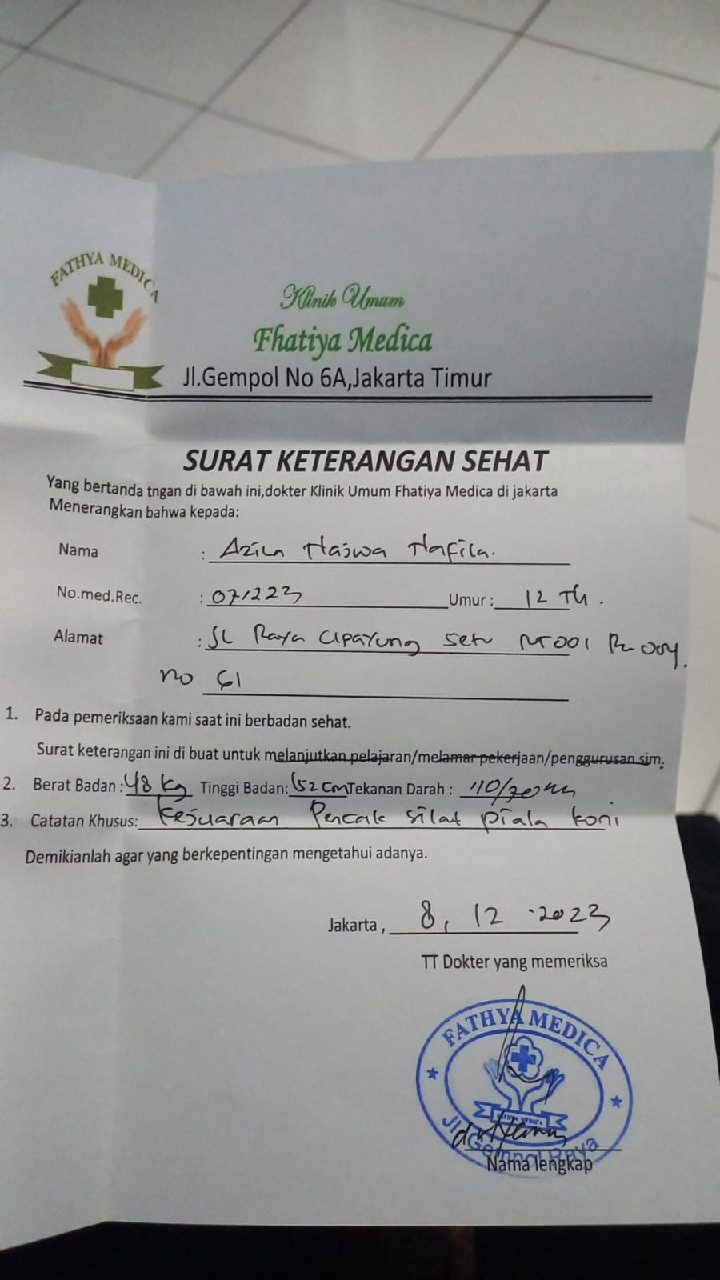 FATHYA MEDICA
Klinik Umum
Fhatiya Medica
Jl.Gempol No 6A,Jakarta Timur
SURAT KETERANGAN SEHAT
Yang bertanda tngan di bawah ini,dokter Klinik Umum Fhatiya Medica di jakarta
Menerangkan bahwa kepada:
Nama : Azila Haswa Hafila.
No.med.Rec. : 071223 Umur : 12 Th .
Alamat : JL Raya Cipayung setu RT001 RW 004.
no 61
1. Pada pemeriksaan kami saat ini berbadan sehat.
Surat keterangan ini di buat untuk melanjutkan pelajaran/melamar pekerjaan/penggurusan sim.
2. Berat Badan : 48 kg Tinggi Badan: 152 cm Tekanan Darah : 110/70
3. Catatan Khusus: Kejuaraan Pencak silat piala koni
Demikianlah agar yang berkepentingan mengetahui adanya.
Jakarta , 8, 12 . 2023
TT Dokter yang memeriksa
FATHYA MEDICA
Jl. Gempol Raya
Nama lengkap